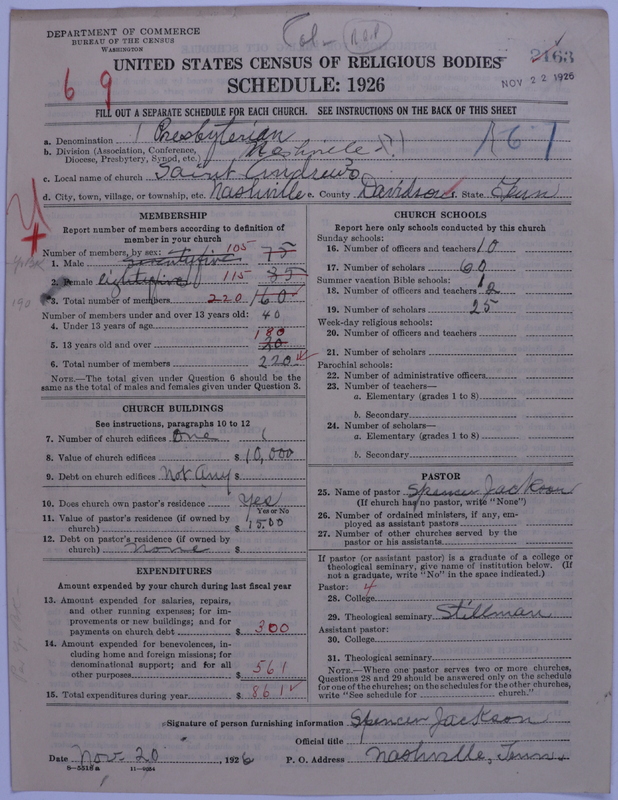 DEPARTMENT OF COMMERCE
BUREAU OF THE CENSUS
WASHINGTON
Col- R.A.P
2163
UNITED STATES CENSUS OF RELIGIOUS BODIES
NOV 22 1926
SCHEDULE: 1926
69
FILL OUT A SEPARATE SCHEDULE FOR EACH CHURCH. SEE INSTRUCTIONS ON THE BACK OF THIS SHEET
a. Denomination Presbyterian
b. Division (Association, Conference, Diocese, Presbytery, Synod, etc.) Nashville
167
c. Local name of church Saint Andrews
d. City, town, village, or township, etc. Nashville e. County Davidson f. State Tenn
MEMBERSHIP
Report number of members according to definition of
member in your church
Number of members, by sex: 105
1. Male seventyfive 75
2. Female eightyfive 115 85
3. Total number of members 220 160
Number of members under and over 13 years old:
4. Under 13 years of age 40
5. 13 years old and over 180 20
6. Total number of members 220
NOTE.—The total given under Question 6 should be the
same as the total of males and females given under Question 3.
CHURCH BUILDINGS
See instructions, paragraphs 10 to 12
7. Number of church edifices One 1
8. Value of church edifices $ 10,000
9. Debt on church edifices Not Any $
10. Does church own pastor's residence Yes
Yes or No
11. Value of pastor's residence (if owned by
church) $ 1500
12. Debt on pastor's residence (if owned by
church) none $
EXPENDITURES
Amount expended by your church during last fiscal year
13. Amount expended for salaries, repairs,
and other running expenses; for im-
provements or new buildings; and for
payments on church debt $ 300
14. Amount expended for benevolences, in-
cluding home and foreign missions; for
denominational support; and for all
other purposes $ 561
15. Total expenditures during year $ 861
CHURCH SCHOOLS
Report here only schools conducted by this church
Sunday schools:
16. Number of officers and teachers 10
17. Number of scholars 60
Summer vacation Bible schools:
18. Number of officers and teachers
19. Number of scholars 25
Week-day religious schools:
20. Number of officers and teachers
21. Number of scholars
Parochial schools:
22. Number of administrative officers
23. Number of teachers—
a. Elementary (grades 1 to 8)
b. Secondary
24. Number of scholars—
a. Elementary (grades 1 to 8)
b. Secondary
PASTOR
25. Name of pastor Spencer Jackson
(If church has no pastor, write "None")
26. Number of ordained ministers, if any, em-
ployed as assistant pastors
27. Number of other churches served by the
pastor or his assistants
If pastor (or assistant pastor) is a graduate of a college or
theological seminary, give name of institution below. (If
not a graduate, write "No" in the space indicated.)
Pastor: 4
28. College
29. Theological seminary Stillman
Assistant pastor:
30. College
31. Theological seminary
NOTE.—Where one pastor serves two or more churches,
Questions 28 and 29 should be answered only on the schedule
for one of the churches; on the schedules for the other churches,
write "See schedule for church."
Signature of person furnishing information Spencer Jackson
Official title
Date Nov. 20, 1926 P. O. Address Nashville, Tenn.
8-5518a 11-9284